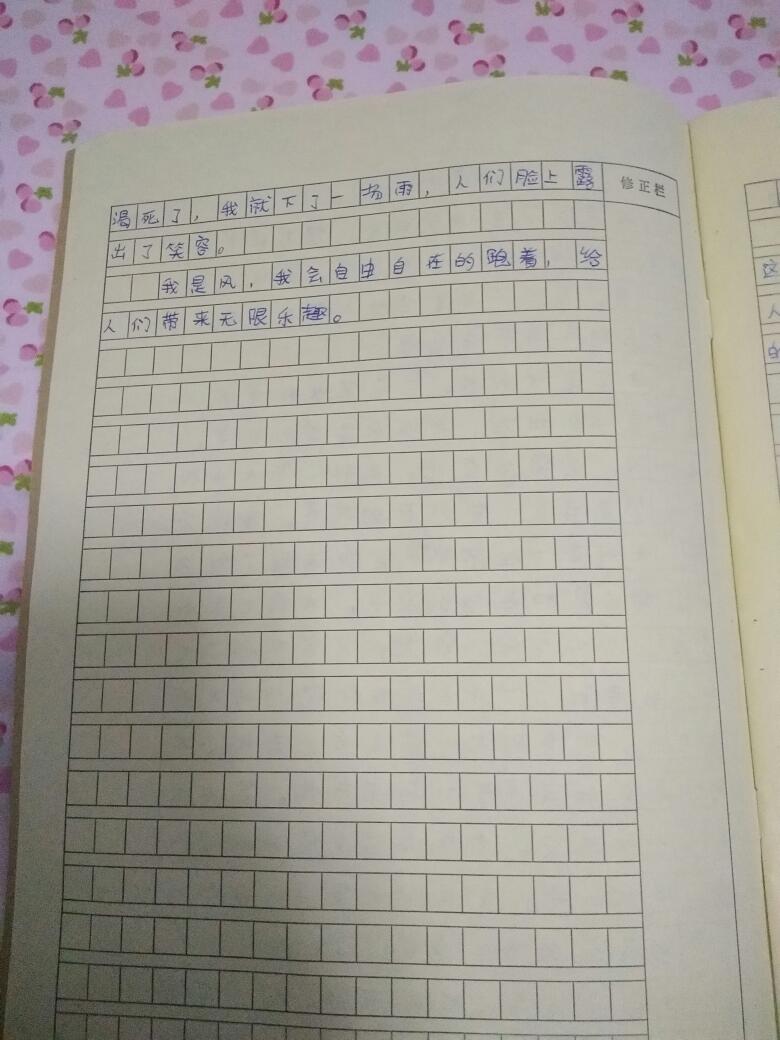 渴死了，我就下了一场雨，人们脸上露
修正栏
出了笑容。
我是风，我会自由自在的跑着，给
人们带来无限乐趣。
这
人
的